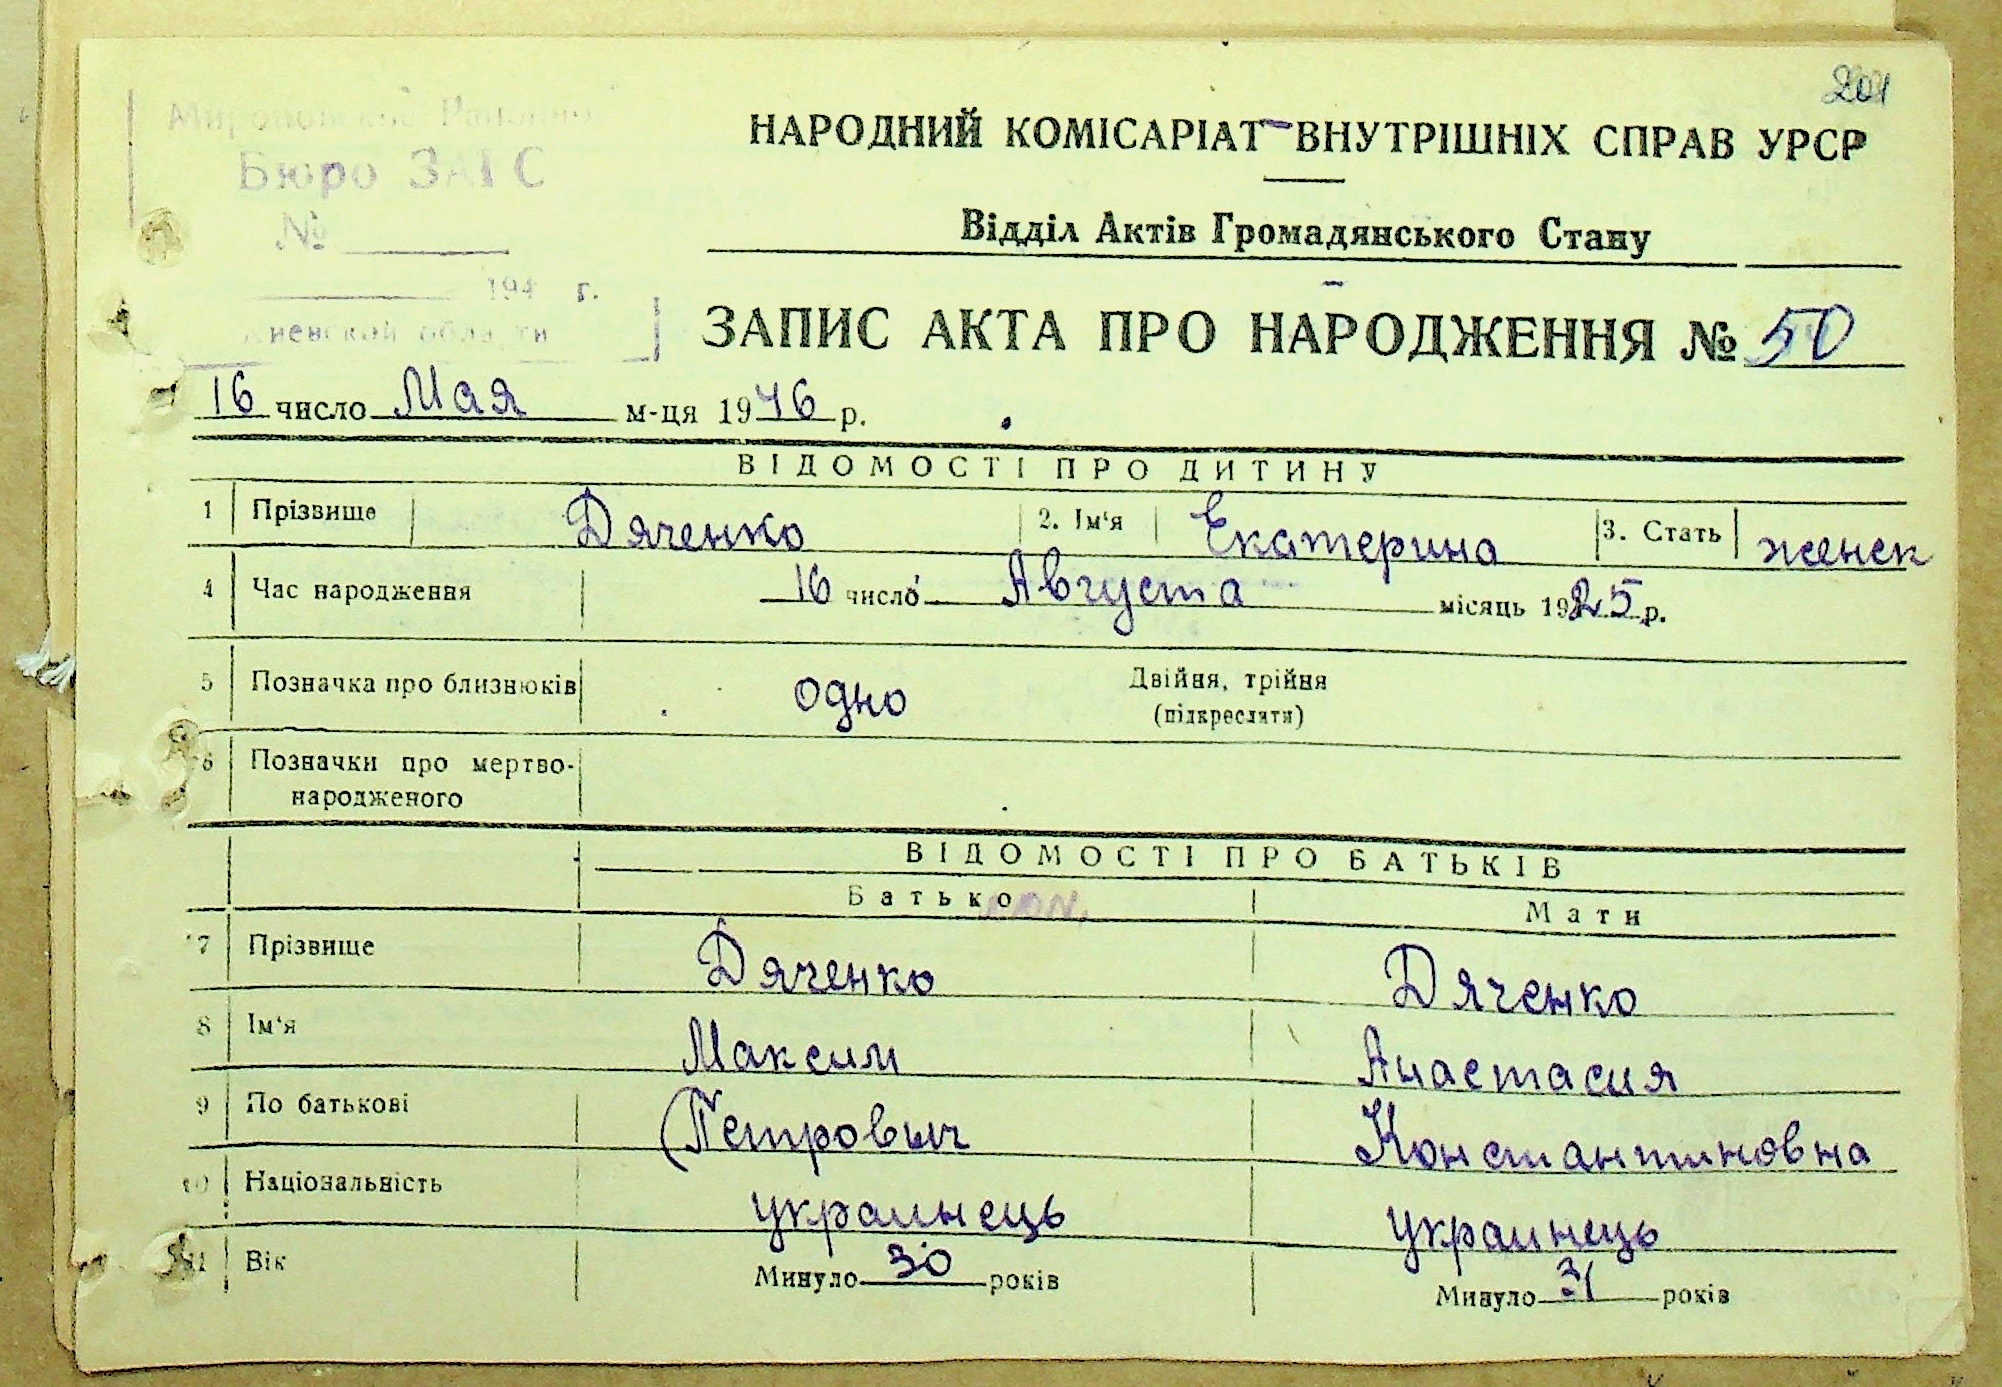 201
Бюро ЗАГС
№
194 г.
НАРОДНИЙ КОМІСАРІАТ ВНУТРІШНІХ СПРАВ УРСР
Відділ Актів Громадянського Стану
ЗАПИС АКТА ПРО НАРОДЖЕННЯ № 50
16 число Мая м-ця 1946 р.
ВІДОМОСТІ ПРО ДИТИНУ
1 Прізвище Дяченко 2. Ім'я Екатерина 3. Стать женск
4 Час народження 16 число Августа місяць 1925 р.
5 Позначка про близнюків одно Двійня, трійня
(підкреслити)
6 Позначки про мертво-
народженого
ВІДОМОСТІ ПРО БАТЬКІВ
Батько Мати
7 Прізвище Дяченко Дяченко
8 Ім'я Максим Анастасия
9 По батькові Петрович Константиновна
10 Національність украинець украинець
11 Вік Минуло 30 років Минуло 31 років